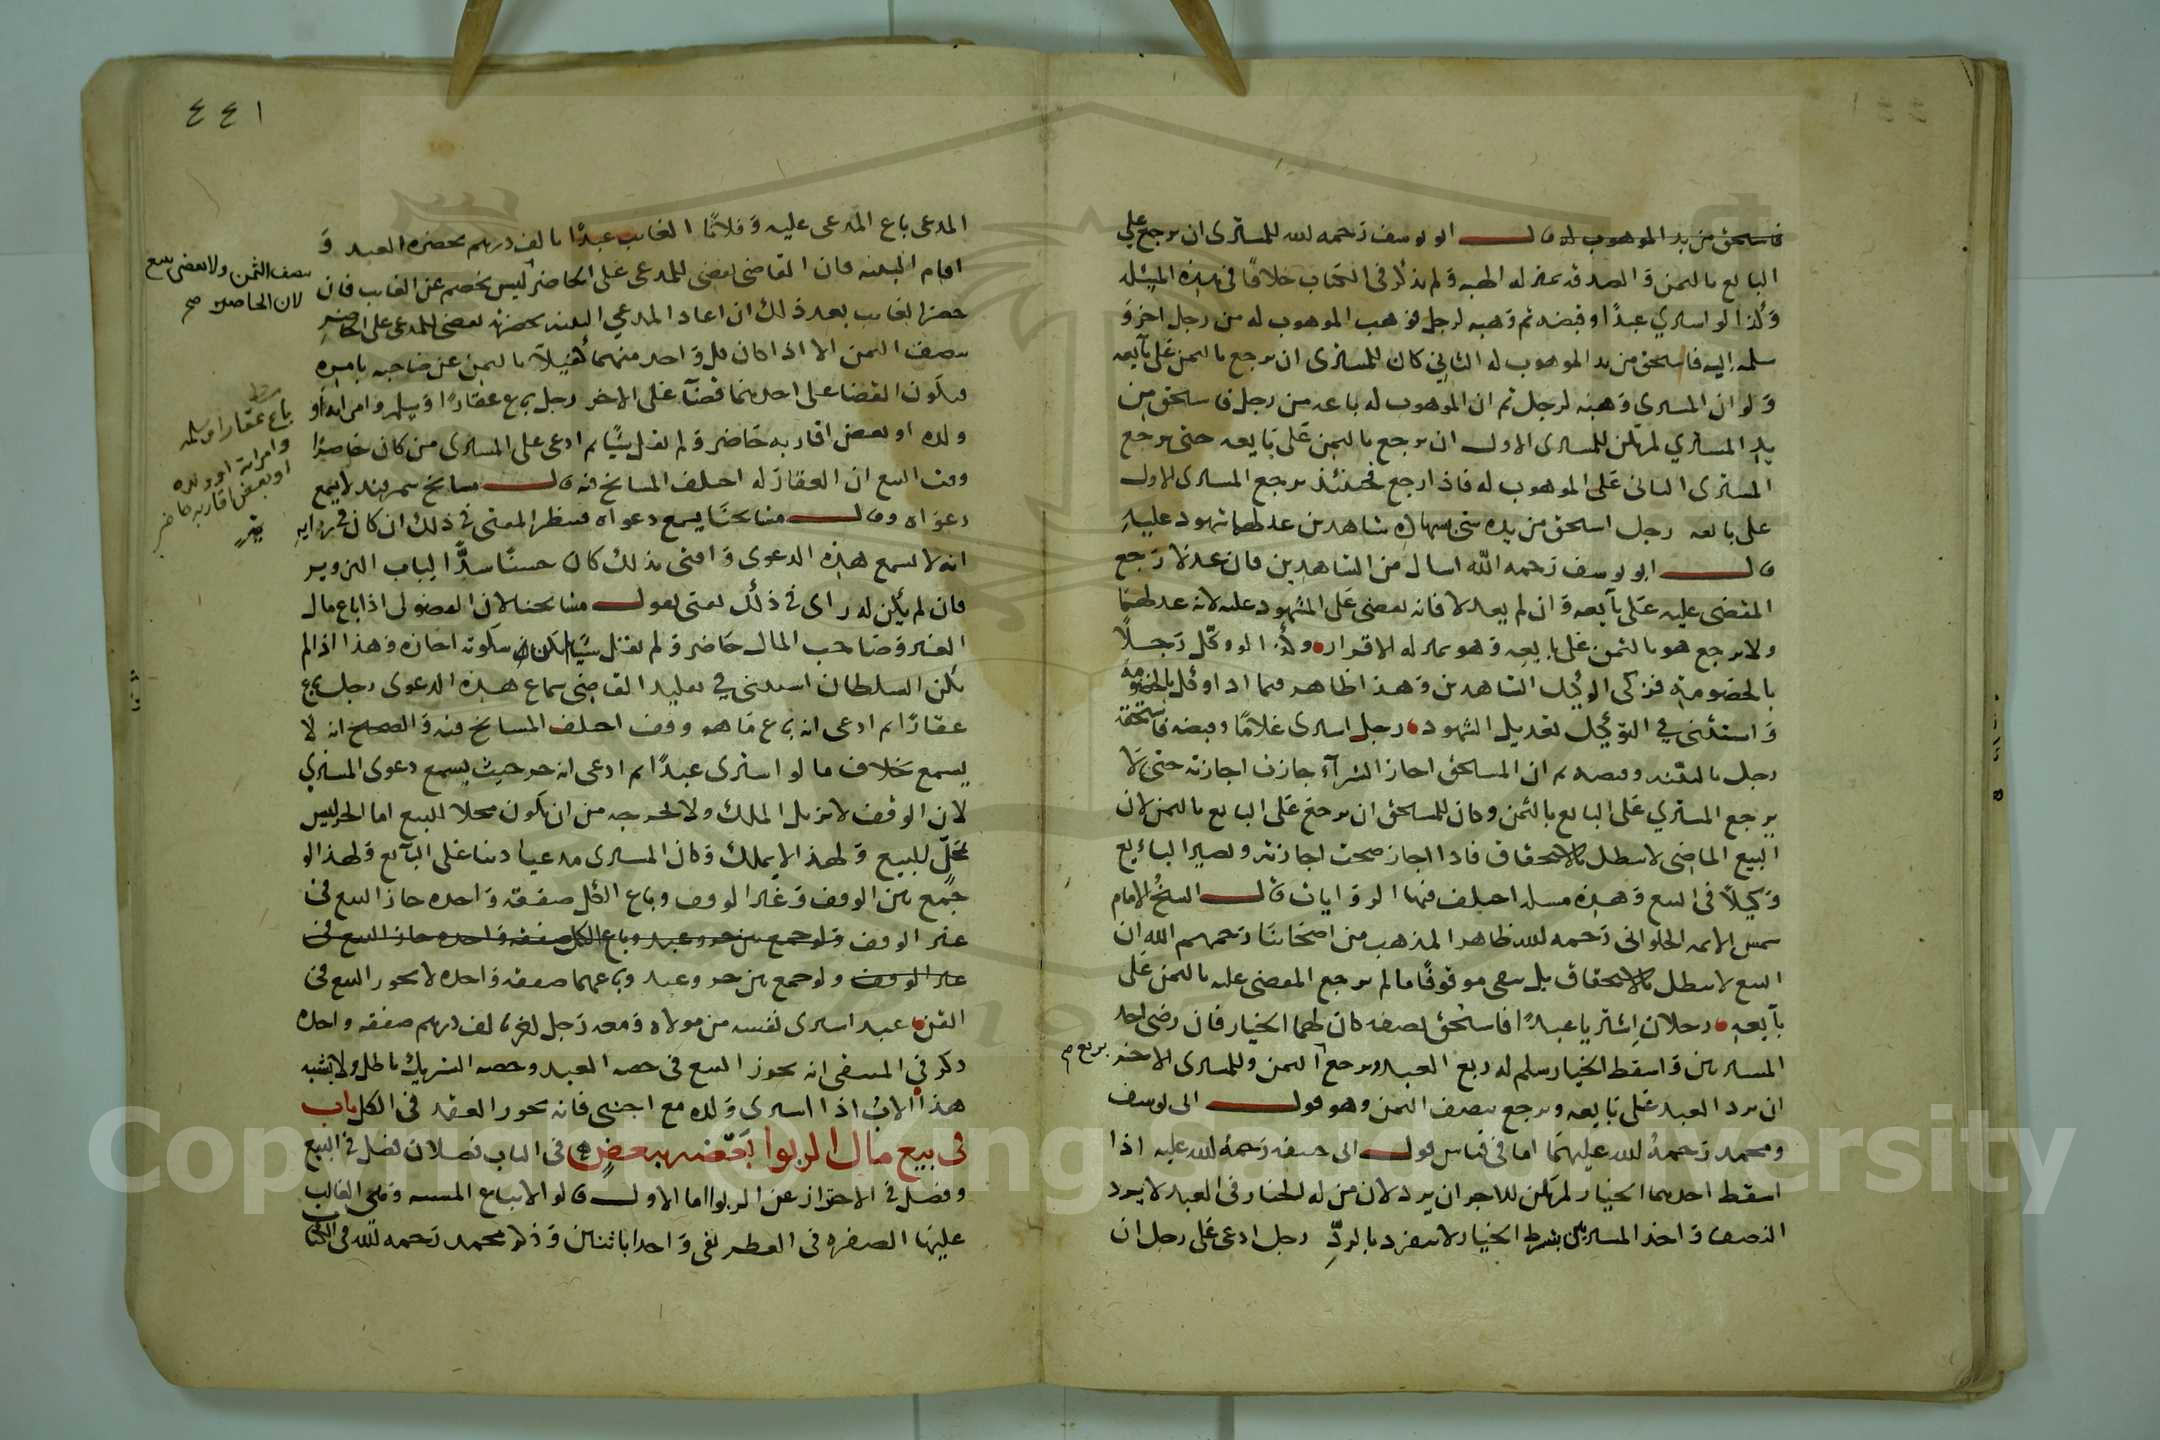 فاستحق من يد الموهوب له قال ابو يوسف رحمه الله للمشتري ان يرجع على
البائع بالثمن و الصدقة بمنزلة الهبة و لم يذكر في الكتاب خلافا في هذه المسئلة
وكذا لو اشتري عبدًا وقبضه ثم وهبه لرجل فوهب الموهوب له من رجل اخر و
سلمه إليه فاستحق من يد الموهوب له الثاني كان للمشترى ان يرجع بالثمن على بآيعه
و لو ان المشتري وهبه لرجل ثم ان الموهوب له باعه من رجل فاستحق من
يد المشتري لم يكن للمشترى الاول ان يرجع بالثمن على بايعه حتى يرجع
المشترى الثانى على الموهوب له فاذا رجع فحينئذ يرجع المشترى الاول
على بائعه رجل استحق من يده شى بشهادة شاهدين عدلهما شهود عليه
قال ابو يوسف رحمه الله اسال من الشاهدين فان عدلا رجع
المقضى عليه على بآيعه و ان لم يعدلا فانه يقضى على المشهود عليه لانه عدلهما
ولا يرجع هو بالثمن على بايعه و هو بمنزلة الاقرار وكذا لو وكل رجلًا
بالخصومة فزكى الوكيل الشاهدين و هذا ظاهر فيما اذا وكل بالخصومة
و استثنى في التوكيل تعديل الشهود رجل اشترى غلامًا وقبضه فاستحقه
رجل بالبينة وقبضه ثم ان المستحق اجاز الشرآء جازت اجازته حتى لا
يرجع المشتري على البايع بالثمن وكان للمستحق ان يرجع على البايع بالثمن لان
البيع الماضى لا يبطل بالاستحقاق فاذا اجاز صحت اجازته و يصير البايع
وكيلاً في البيع و هذه مسئلة اختلف فيها الروايات قال الشيخ الامام
شمس الائمه الحلوانى رحمه الله ظاهر المذهب من اصحابنا رحمهم الله ان
البيع لا يبطل بالاستحقاق بل يبقى موقوفًا ما لم يرجع المقضى عليه بالثمن على
بآيعه رجلان اشتريا عبدًا فاستحق نصفه كان لهما الخيار فان رضى احد
المشتريين و اسقط الخيار سلم له ربع العبد ويرجع الثمن وللمشترى الاخر
بربع صح
ان يرد العبد على بايعه ويرجع بنصف الثمن وهو قول ابى يوسف
ومحمد رحمة الله عليهما اما فى قياس قول ابى حنيفة رحمة الله عليه اذا
اسقط احدهما الخيار لم يكن للاخر ان يرد لان من له الخيار فى العبد لا يرد
النصف و احد المشتريين بشرط الخيار لا ينفرد بالردّ رجل ادعى على رجل ان
٤٤١
المدعى باع المدعى عليه و فلانًا الغائب عبدًا بالف درهم بحضرة العبد و
اقام البينة فان القاضى يقضى للمدعى على الحاضر ليس بخصم عن الغايب فان
بنصف الثمن ولا يقضى ببيع
لان الحاضر صح
حضر الغايب بعد ذلك ان اعاد المدعي البينة بحضرته يقضى للمدعى على الحاضر
بنصف الثمن الا اذا كان كل واحد منهما كفيلًا بالثمن عن صاحبه بامره
فيكون القضا على احدهما قضآء على الاخر رجل باع عقارًا وسلم وامراته او
ولده او بعض اقاربه حاضر و لم يقل شيًا ثم ادعى على المشترى من كان حاضرًا
باع عقارا وسلمه
وامراته او ولده
او بعض اقاربه حاضر
وقت البيع ان العقار له اختلف المشايخ فيه قال مشايخ سمرقند لا يسمع
دعواه وقال مشايخنا يسمع دعواه فينظر المفتى في ذلك ان كان في رواية
انه لا يسمع هذه الدعوى و افتى بذلك كان حسنًا سدًّا لباب التزوير
فان لم يكن له راى في ذلك يفتى بقول مشايخنا لان الفضولى اذا باع مال
الغير و صاحب المال حاضر و لم يقل شيًا لم يكن سكوته اجازة و هذا اذا لم
يكن السلطان استثنى في تقليد القاضى سماع هذه الدعوى رجل باع
عقارًا ثم ادعى انه باع ما هو وقف اختلف المشايخ فيه و الصحيح انه لا
يسمع بخلاف ما لو اشترى عبدًا ثم ادعى انه حر حيث يسمع دعوى المشتري
لان الوقف لا يزيل الملك ولا يخرجه من ان يكون محلا للبيع اما الحر ليس
بمحلّ للبيع و لهذا لا يملك و كان المشترى مدعيا دينا على البآيع و لهذا لو
جمع بين الوقف و غير الوقف وباع الكل صفقة واحدة جاز البيع في
غير الوقف ولو جمع بين حر وعبد وباع الكل صفقة واحدة جاز البيع فى
غير الوقف ولو جمع بين حر وعبد وباعهما صفقة واحدة لا يجوز البيع فى
القن عبد اشترى نفسه من مولاه ومعه رجل اخر بالف درهم صفقة واحدة
ذكر في المنتقى انه يجوز البيع فى حصة العبد وحصة الشريك باطل ولا يشبه
هذا الاب اذا اشترى ولده مع اجنبى فانه يجوز العقد فى الكل باب
فى بيع مال الربوا بعضه ببعض فى الباب فصلان فصل في البيع
وفصل في الاحتراز عن الربوا اما الاول قالوا لا يباع و فى الغالب
عليها الصفر فى العطر يفى واحدا باثنين و ذكر محمد رحمه الله فى الكتاب